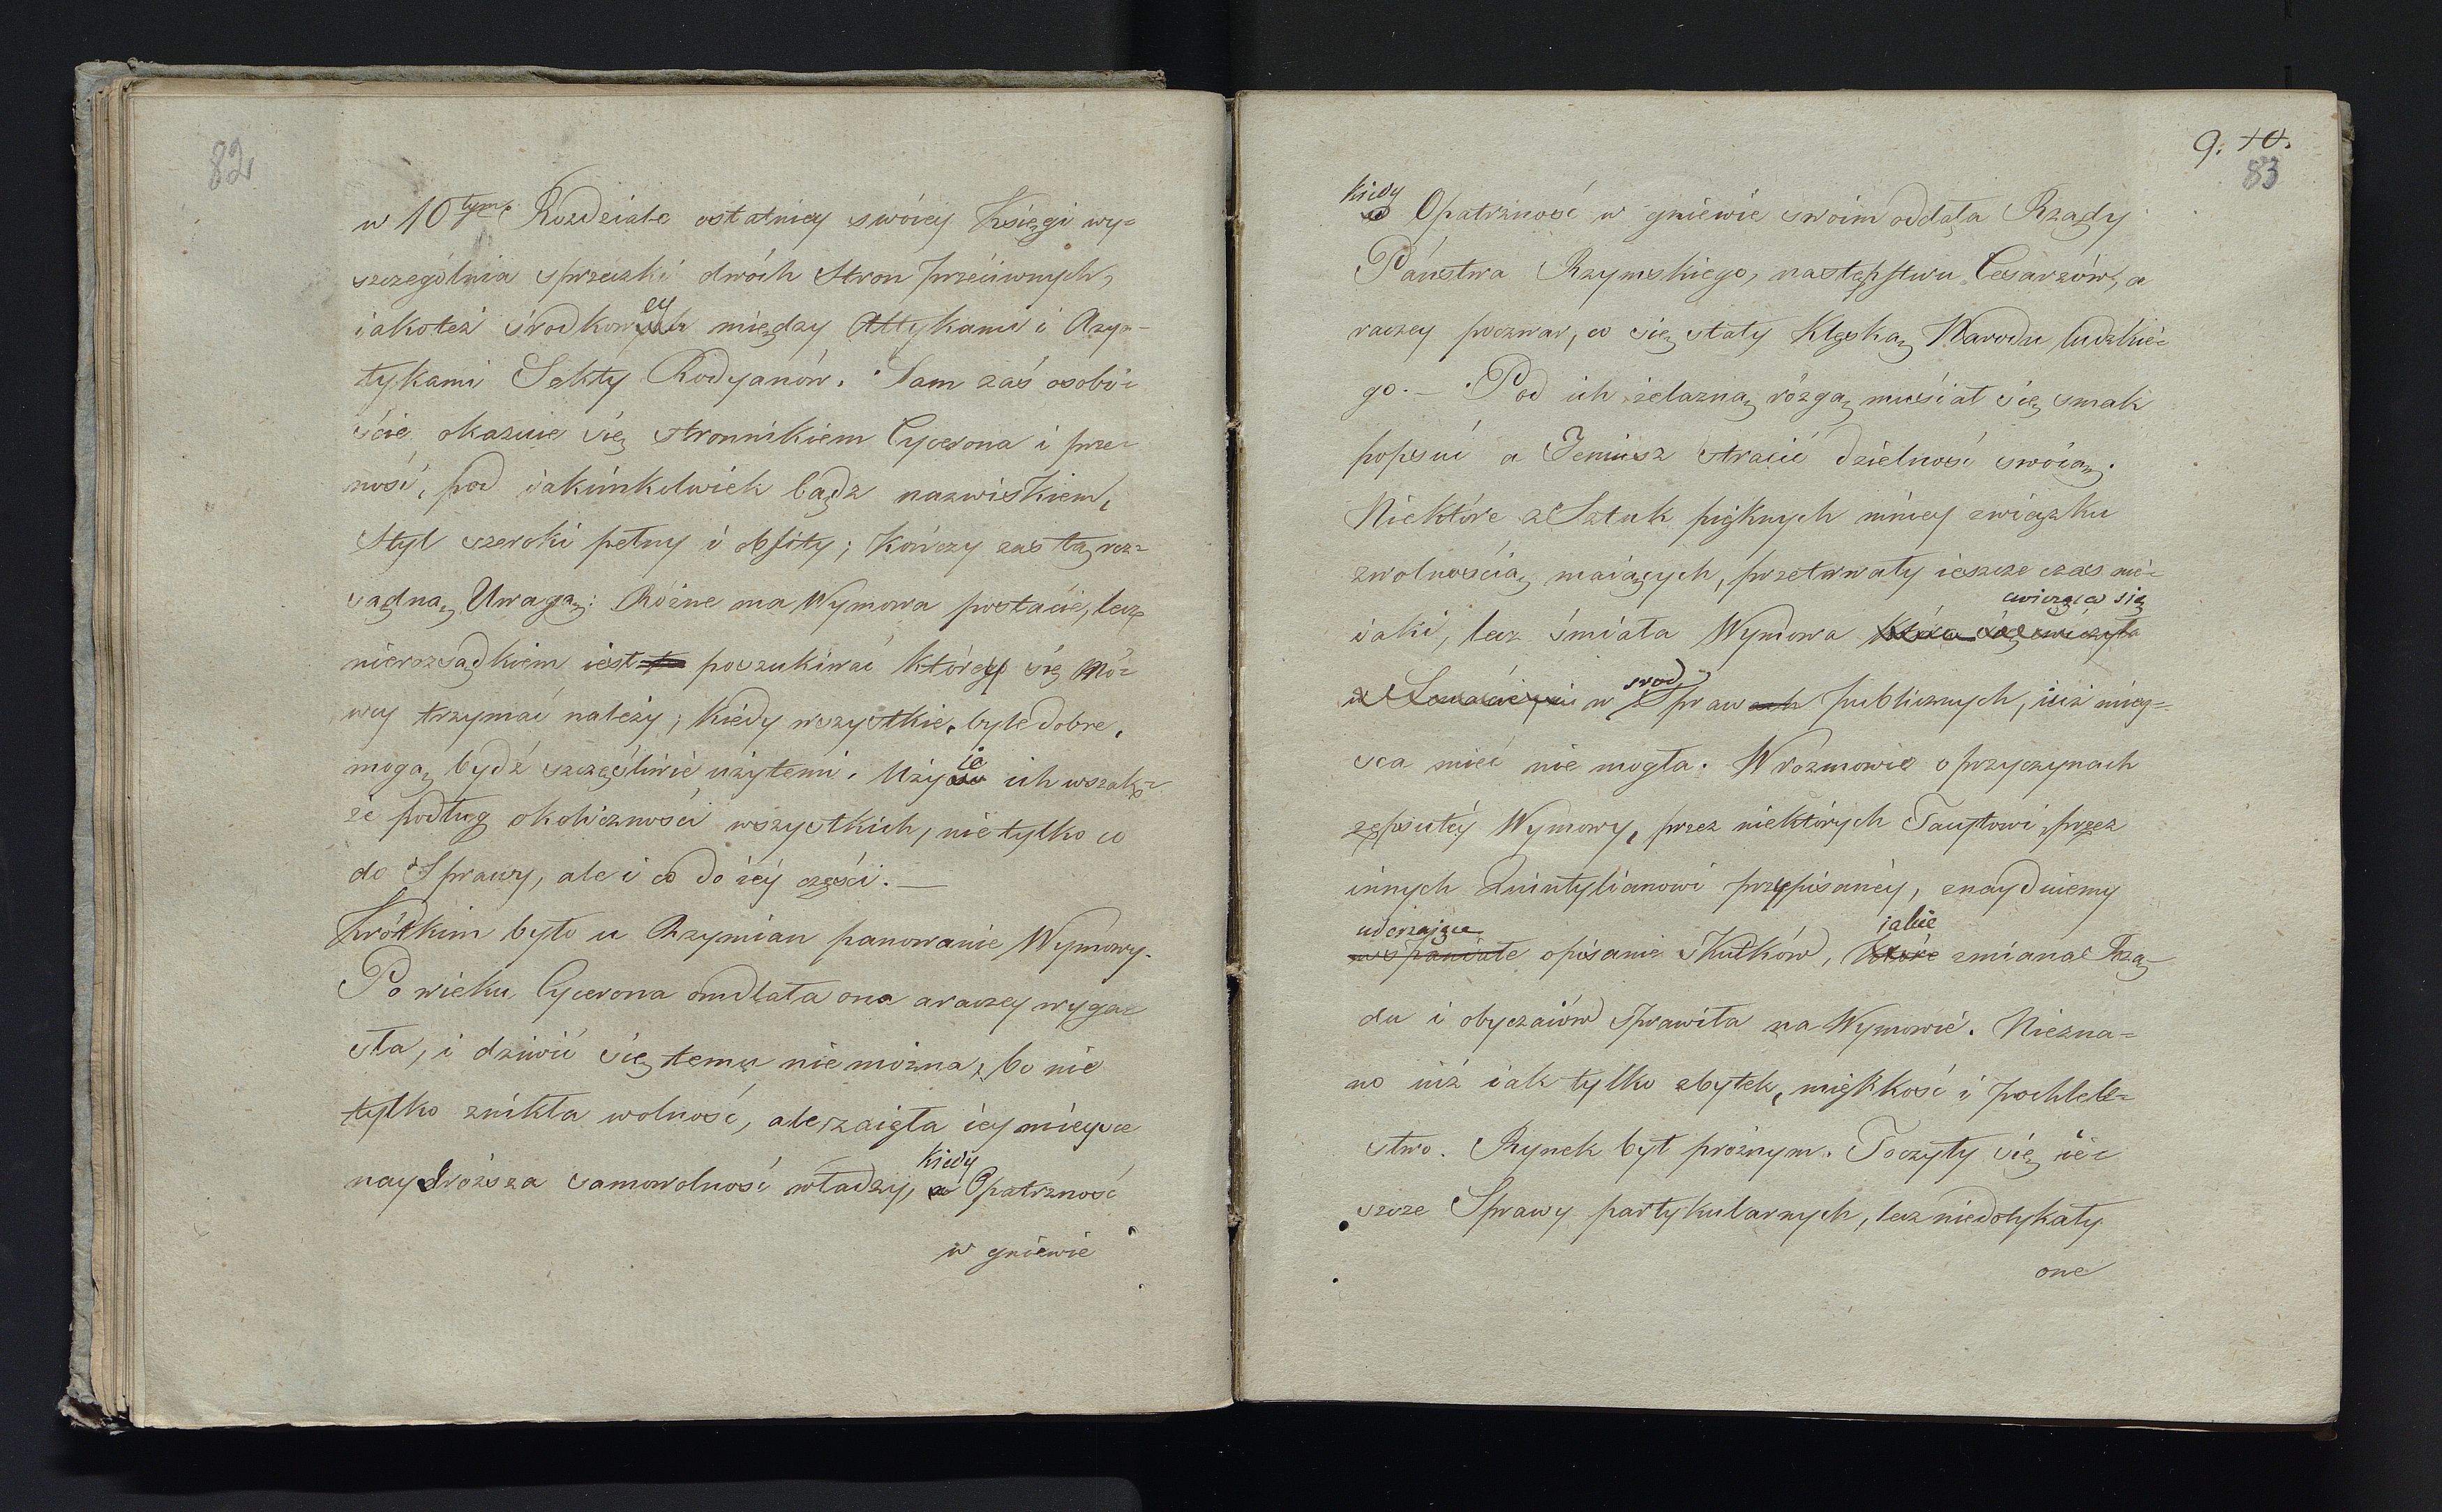 82
w 10tym Rozdziale ostatniey swóiey Księgi wy=
szczególnia sprzeczki dwóch Stron przéciwnych,
iakoteż środkowey między Attykami i Azya-
tykami Sekty Rodyanów. Sam zaś osobi=
ście okazuie się stronnikiem Cycerona i prze=
nosi, pod iakimkolwiek bądz nazwiskiem,
Styl szeroki pełny i obfity; kończy zas tą roz=
sądną Uwagą: Różne ma Wymowa postacie, lecz
nierozsądkiem iest poszukiwać któréy się Mó=
wcy trzymać należy; kiédy wszystkie, byle dobre,
mogą bydź szczęśliwie użytemi. Użycie ich wszak=
że podług okoliczności wszystkich, nie tylko co
do Sprawy, ale i co do iéy części. —
Krótkim było u Rzymian panowanie Wymowy.
Po wieku Cycerona omdlała ona a raczey wyga=
sła, i dziwić się temu nie można, bo nie
tylko znikła wolność, ale zaięła iéy miéysce
naysroższa samowolność władzy, kiedy Opatrzność
w gniewie
9. 10.
83
kiedy Opatrzność w gniewie swoim oddała Rządy
Państwa Rzymskiego, następstwu Cesarzów, a
raczey poczwar, co się stały Klęską Narodu ludzkie=
go. — Pod ich żelazną rózgą musiał się smak
popsuć a Jeniusz stracić dzielność swoią.
Niektóre z Sztuk pięknych mniey związku
z wolnością maiących, przetrwały ieszcze czas nie=
iaki, lecz śmiała Wymowa cwicząca się
w środ Spraw publicznych, iuż miey=
sca mieć nie mogła. W rozmowie o przyczynach
zepsutéy Wymowy, przez niektórych Tacytowi, przez
innych Quintylianowi przypisanéy, znayduiemy
uderzaiące opisanie skutków, iakie zmiana Rzą=
du i obyczaiów sprawiła na Wymowie. Niezna=
no iuż iak tylko zbytek, miękkość i pochleb=
stwo. Rynek był próżnym. Toczyły się ie=
szcze Sprawy partykularnych, lecz niedotykały
one